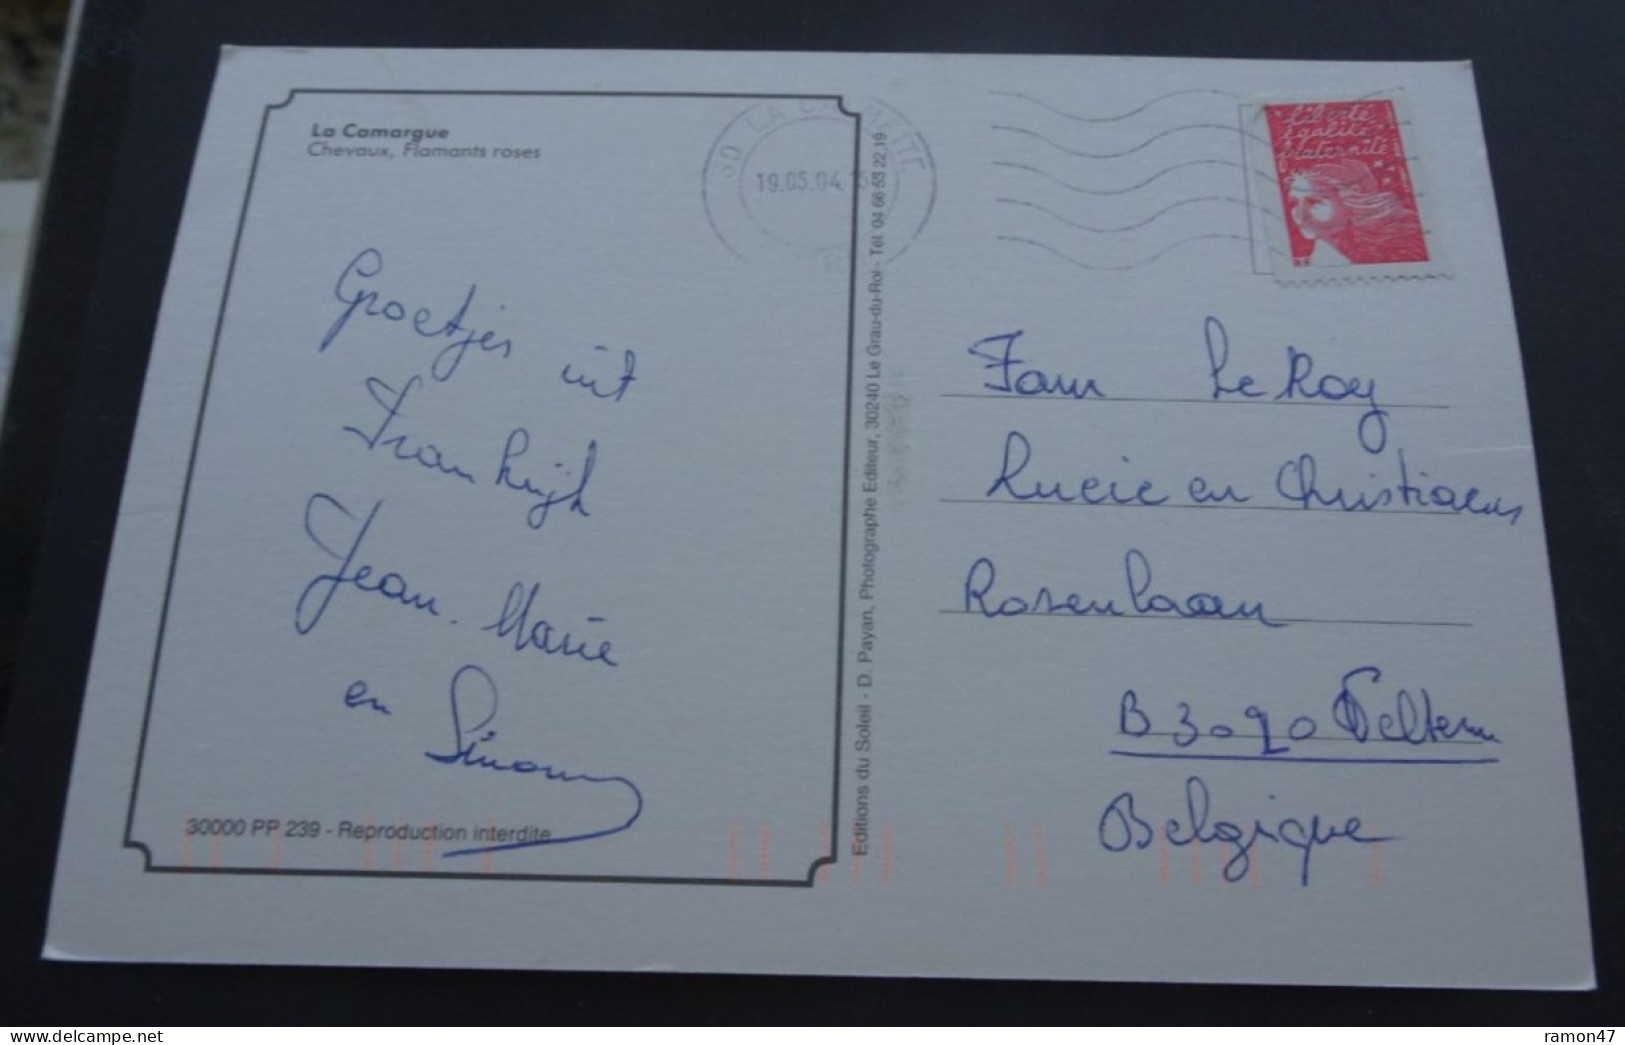 La Camargue
Chevaux, Flamants roses
Groetjes uit
Frankrijk
Jean-Marie
en Simonne
30000 PP 239 - Reproduction interdite
Editions du Soleil - D. Payan, Photographe Editeur, 30240 Le Grau-du-Roi - Tél. 04 66 53 22 19
30 LA CALMETTE
19.05.04
Liberté
égalité
fraternité
RF
Fam Le Roy
Lucie en Christiaens
Rosenlaan
B 3020 Veltem
Belgique
ramon47